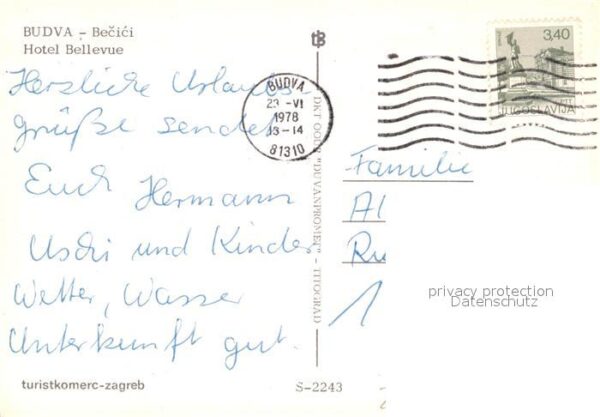 BUDVA – Bečići
Hotel Bellevue
Herzliche Urlaubs-
grüße sendet
Euch Hermann
Uschi und Kinder
Wetter, Wasser
Unterkunft gut.
turistkomerc-zagreb
BUDVA
23 -VI
1978
13-14
81310
"DUVANPROMET" – TITOGRAD
S-2243
3,40
JUGOSLAVIJA
Familie
Al
Ru
1
privacy protection
Datenschutz